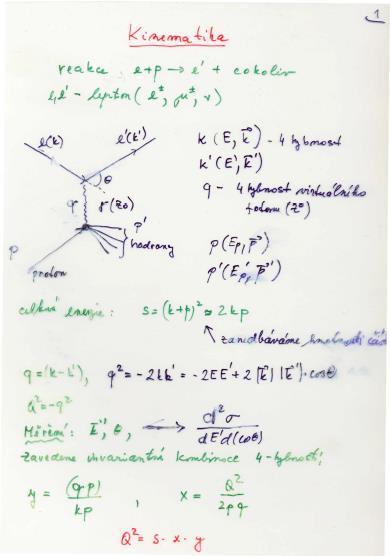 1
Kinematika
reakce: l+p → l' + cokoliv
l,l' - lepton (e±, μ±, ν)
l(k) l'(k')
θ
q γ(Z0)
p'
hadrony
p
proton
k (E, k⃗) - 4 hybnost
k' (E', k⃗')
q - 4 hybnost virtuálního
fotonu (Z0)
p (Ep, p⃗)
p' (E'p, p⃗')
celková energie: s = (k+p)² ≈ 2kp
zanedbáváme hmotnosti
q = (k-k'), q² = -2kk' = -2EE' + 2|k⃗||k⃗'|·cosθ
Q² = -q²
Měření: k⃗', θ, → d²σ / dE'd(cosθ)
zavedeme invariantní kombinace 4-hybností:
y = (q·p) / kp , x = Q² / 2pq
Q² = s · x · y